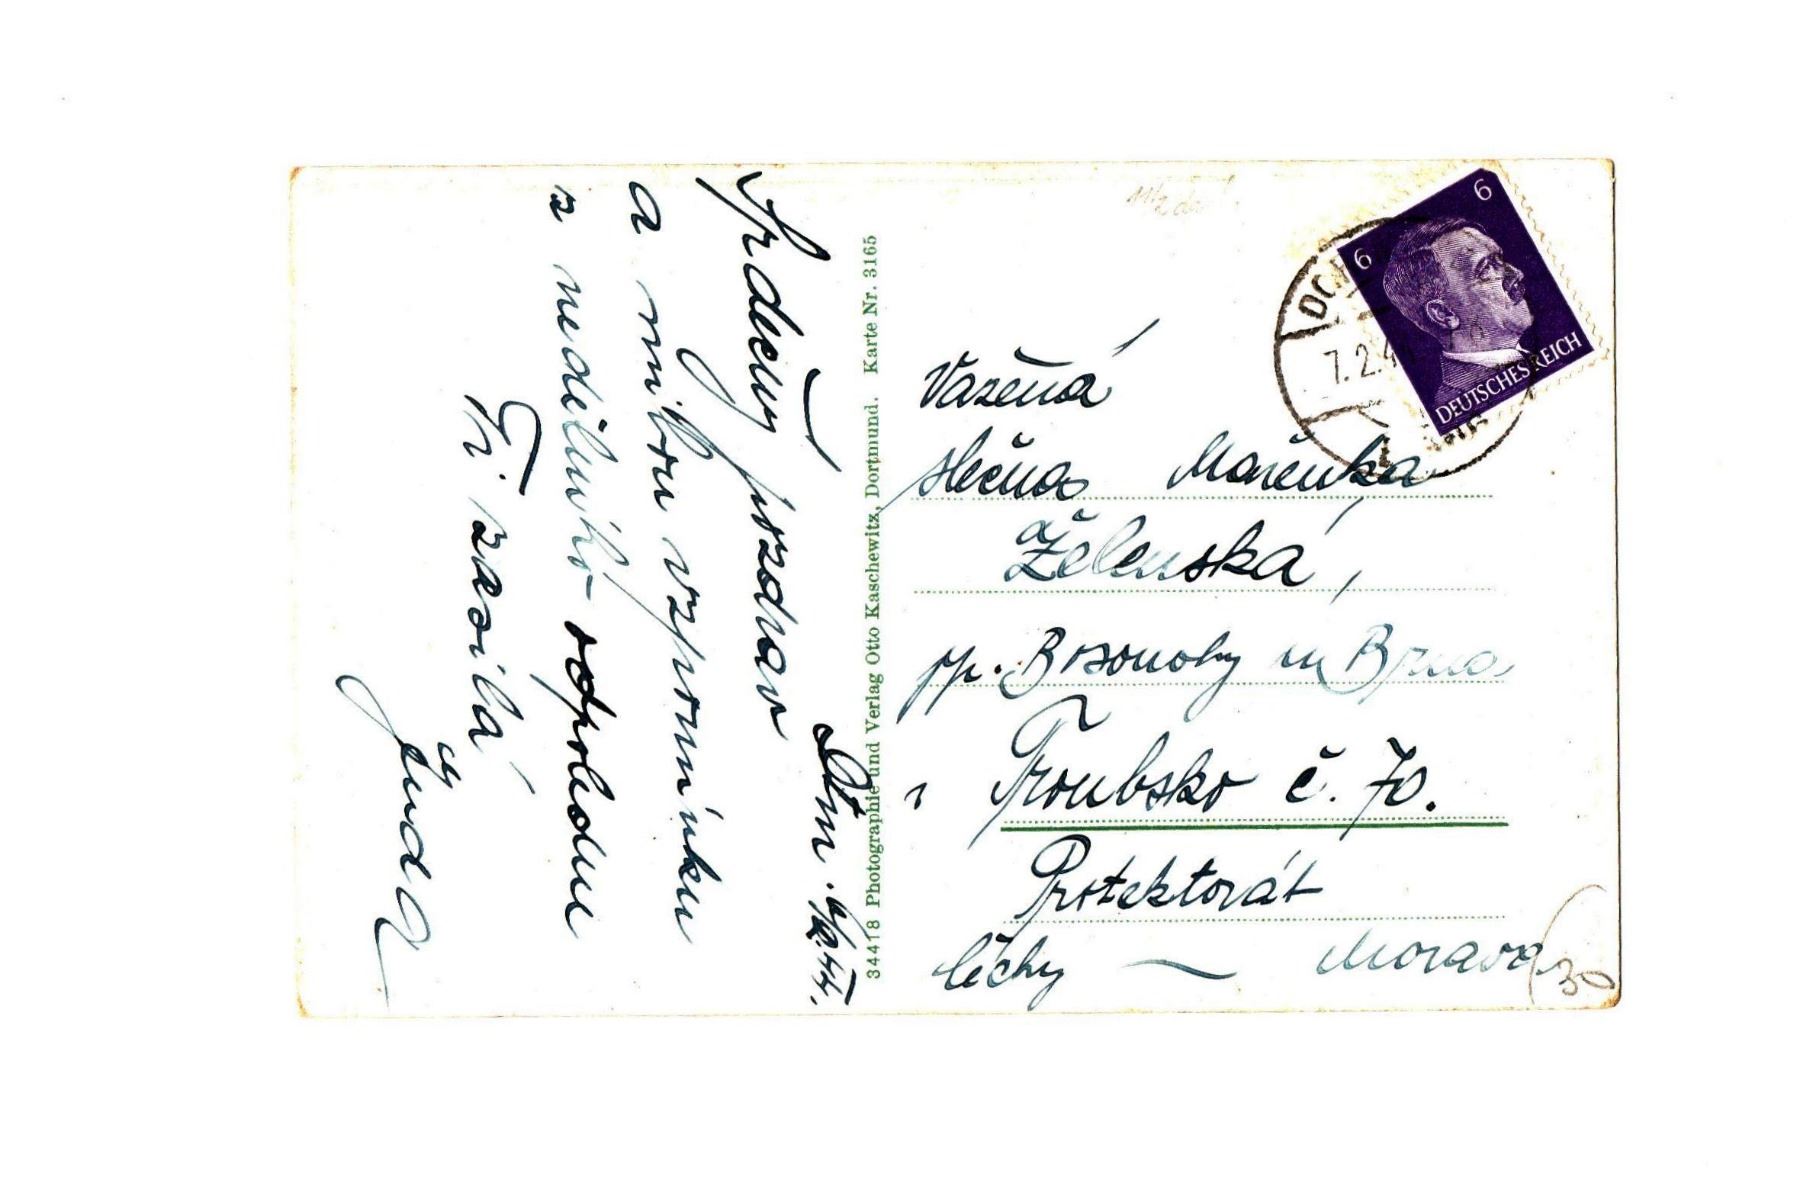 Dtm. 6/2.44.
Srdečný pozdrav
a milou vzpomínku
z nedělního odpoledne
Ti zasílá
34418 Photographie und Verlag Otto Kaschewitz, Dortmund. Karte Nr. 3165
6
6
DEUTSCHES REICH
7.2.4
Vážená
slečna Mařenka
Želenská,
pp. Bosonohy u Brna
Troubsko č. 70.
Protektorát
Čechy — Morava
30